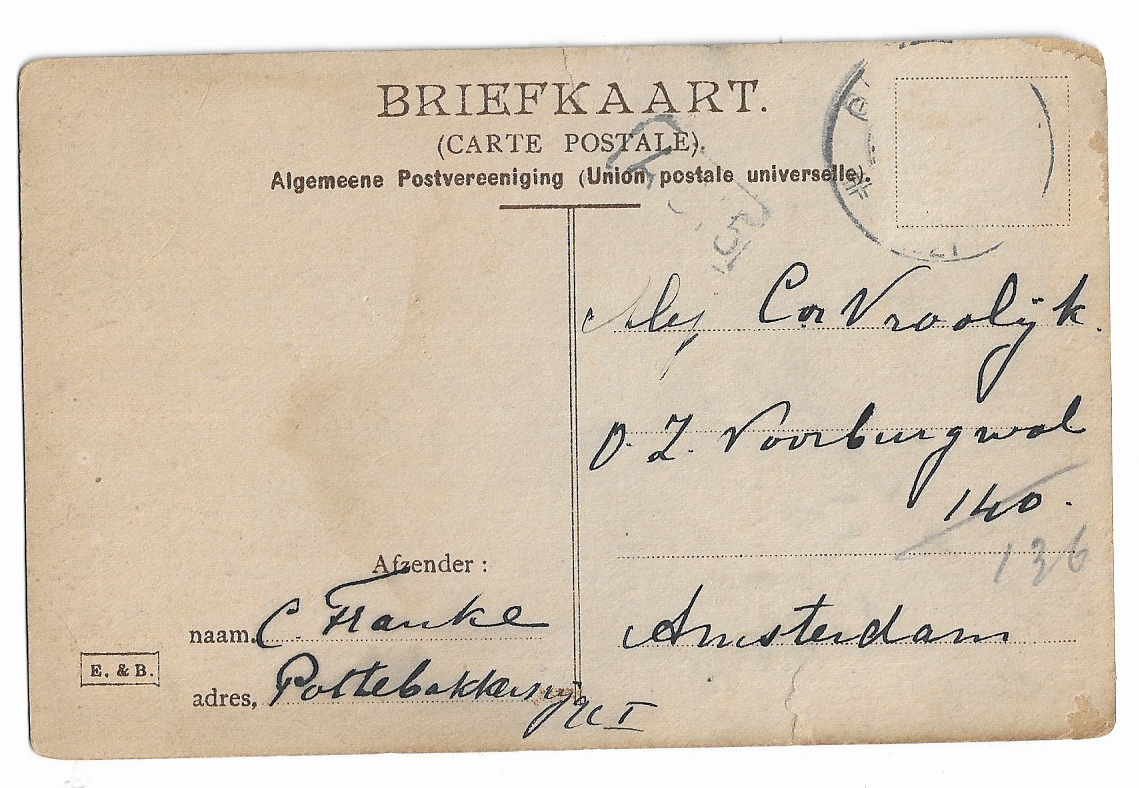 BRIEFKAART.
(CARTE POSTALE).
Algemeene Postvereeniging (Union postale universelle).
Cor Vroolijk.
O. Z. Voorburgwal
140.
136
Amsterdam
Afzender:
naam, C. Franke
E. & B.
adres, Pottebakkersrijk I